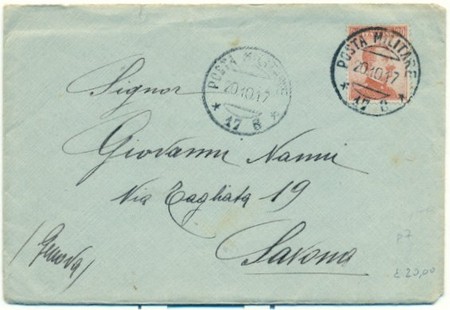 POSTA MILITARE
20.10.17
* 17 8 *
POSTA MILITARE
20.10.17
* 17 8 *
Signor
Giovanni Nanni
Via Tagliata 19
Savona
(Genova)
P7
£ 20,00